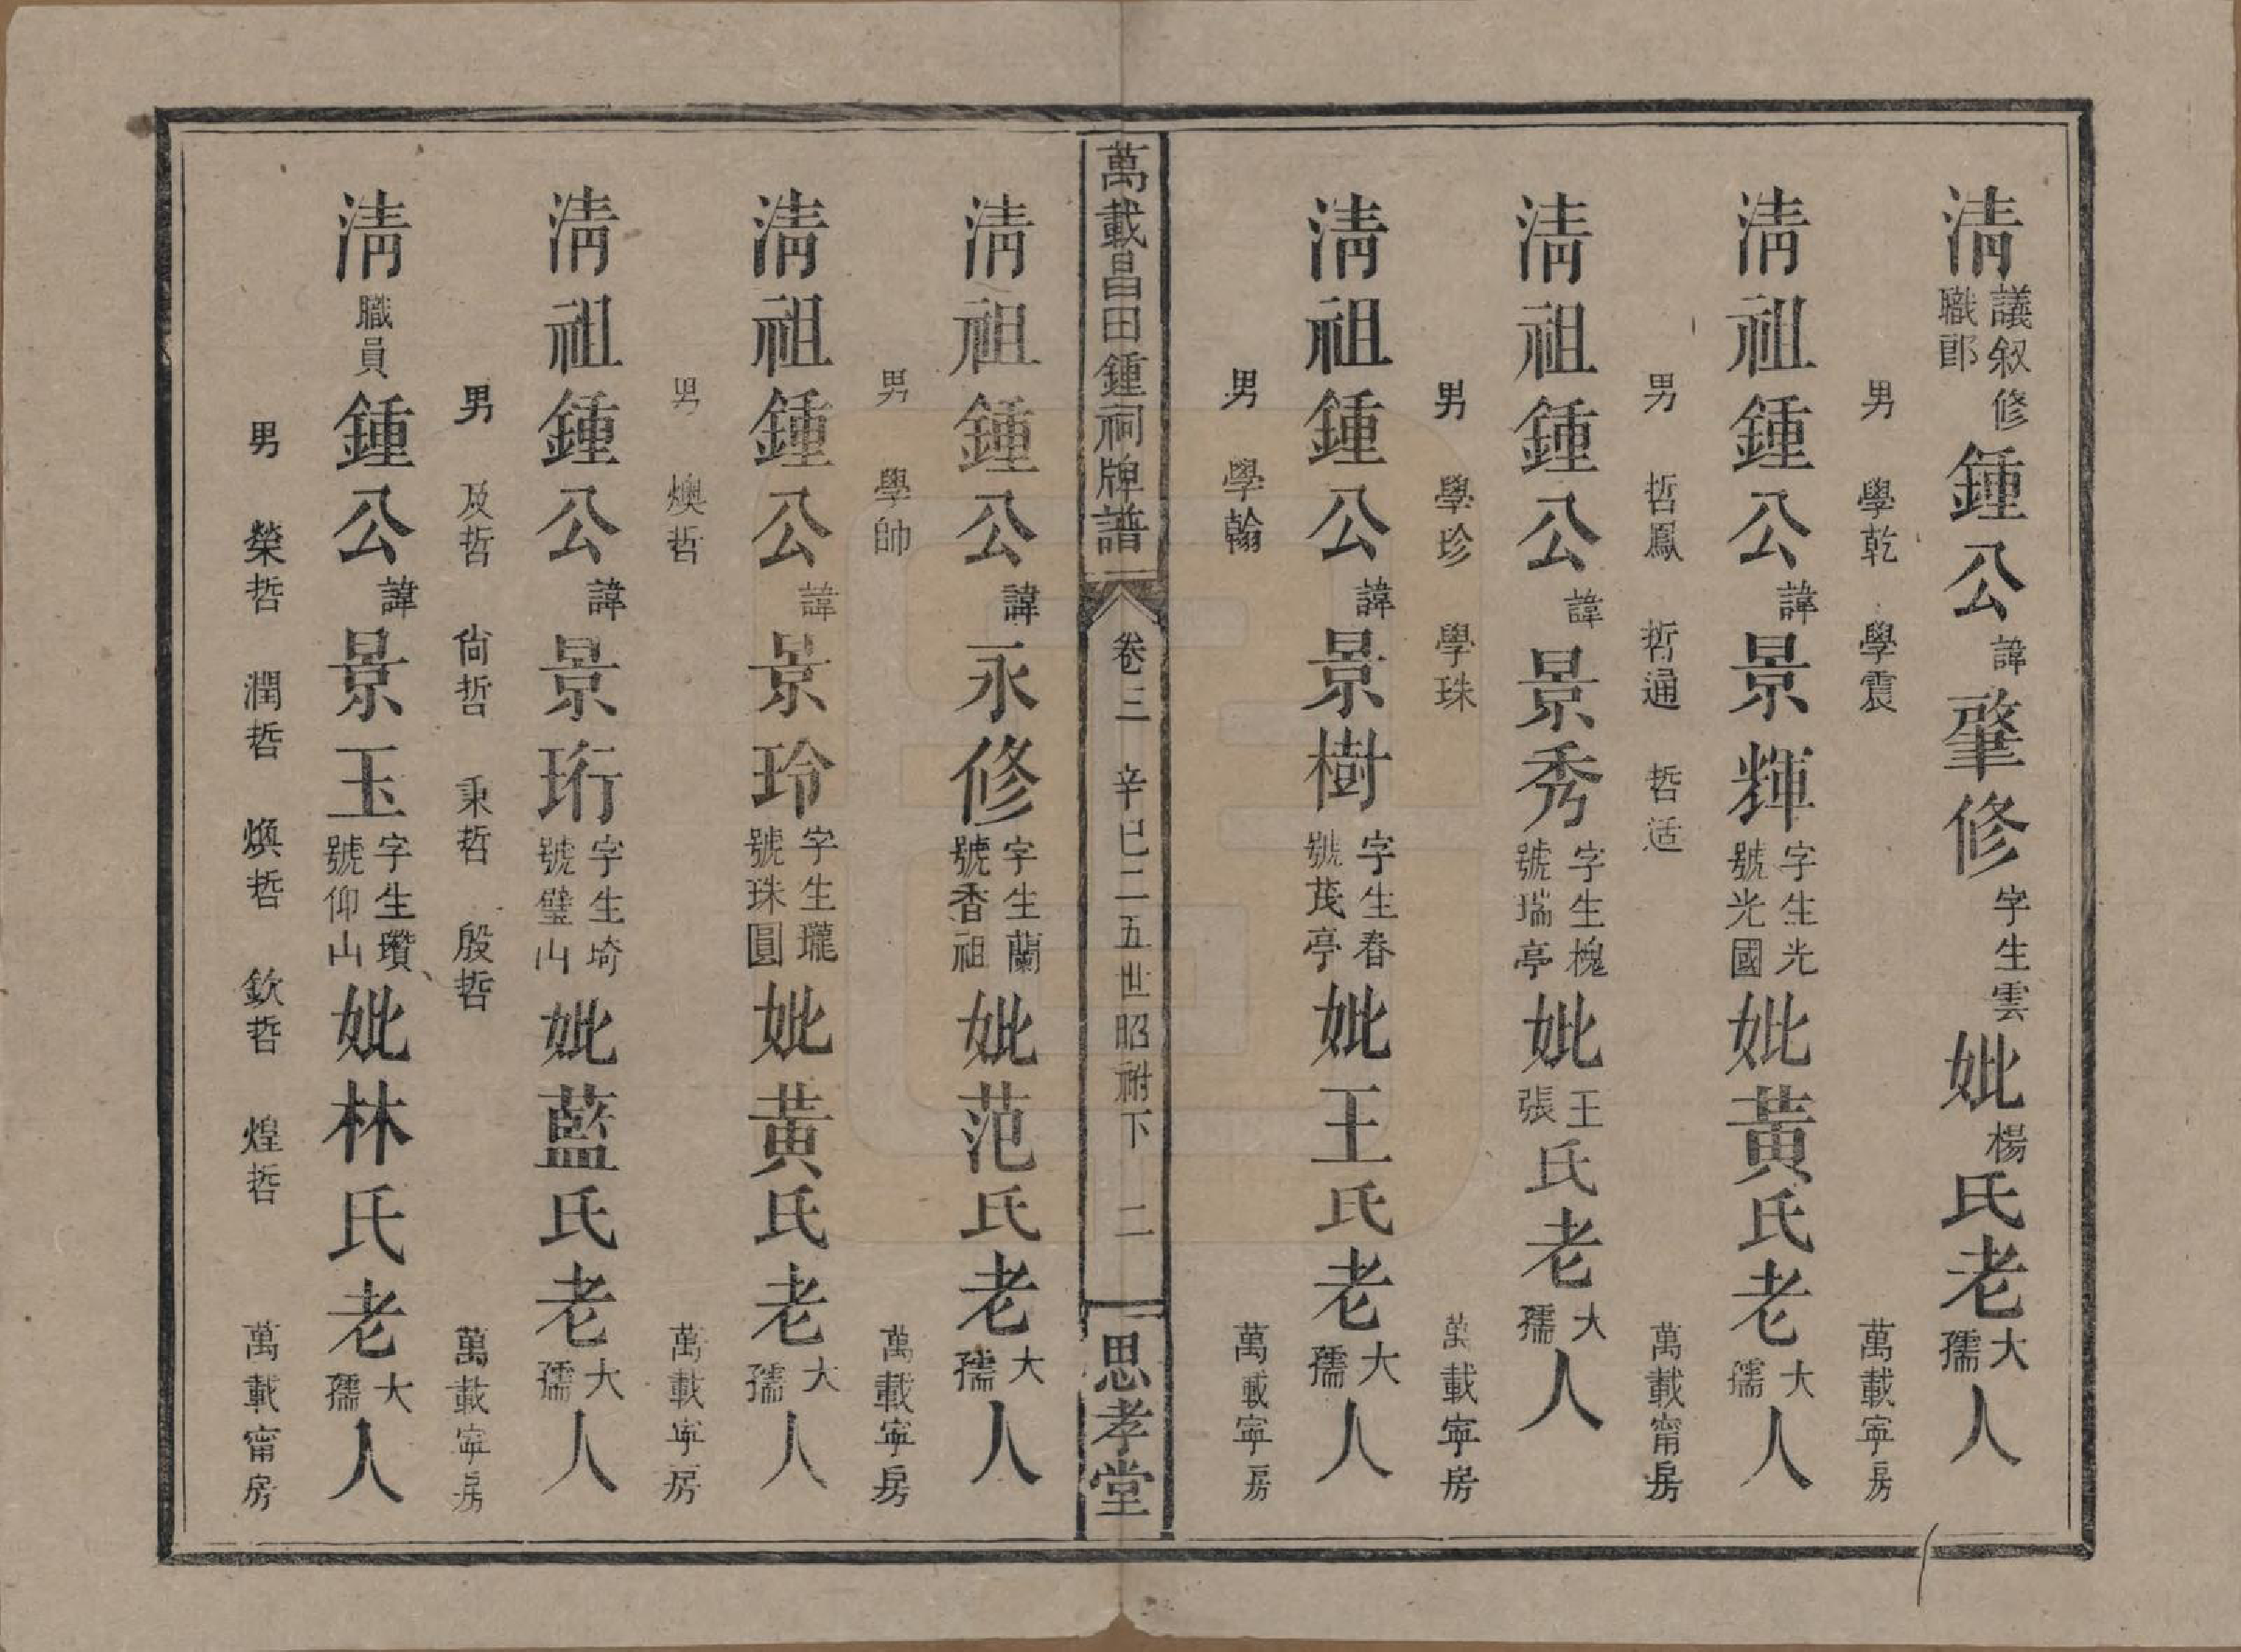 清議叙修職郎鍾公諱肇修字生雲妣楊氏老大孺人
男 學乾 學震 萬載寧房
清祖鍾公諱景輝字生光號光國妣黃氏老大孺人
男 哲鳳 哲通 哲适 萬載甯房
清祖鍾公諱景秀字生槐號瑞亭妣王張氏老大孺人
男 學珍 學珠 萬載寧房
清祖鍾公諱景樹字生春號茂亭妣王氏老大孺人
男 學翰 萬載寧房
萬載昌田鍾祠牌譜 卷三 辛巳二五世昭祔下 二 思孝堂
清祖鍾公諱永修字生蘭號香祖妣范氏老大孺人
男 學帥 萬載寧房
清祖鍾公諱景玲字生瓏號珠圓妣黃氏老大孺人
男 燠哲 萬載寧房
清祖鍾公諱景珩字生埼號璧山妣藍氏老大孺人
男 及哲 尙哲 秉哲 殷哲 萬載寧房
清職員鍾公諱景玉字生瓚號仰山妣林氏老大孺人
男 榮哲 潤哲 煥哲 欽哲 煌哲 萬載甯房